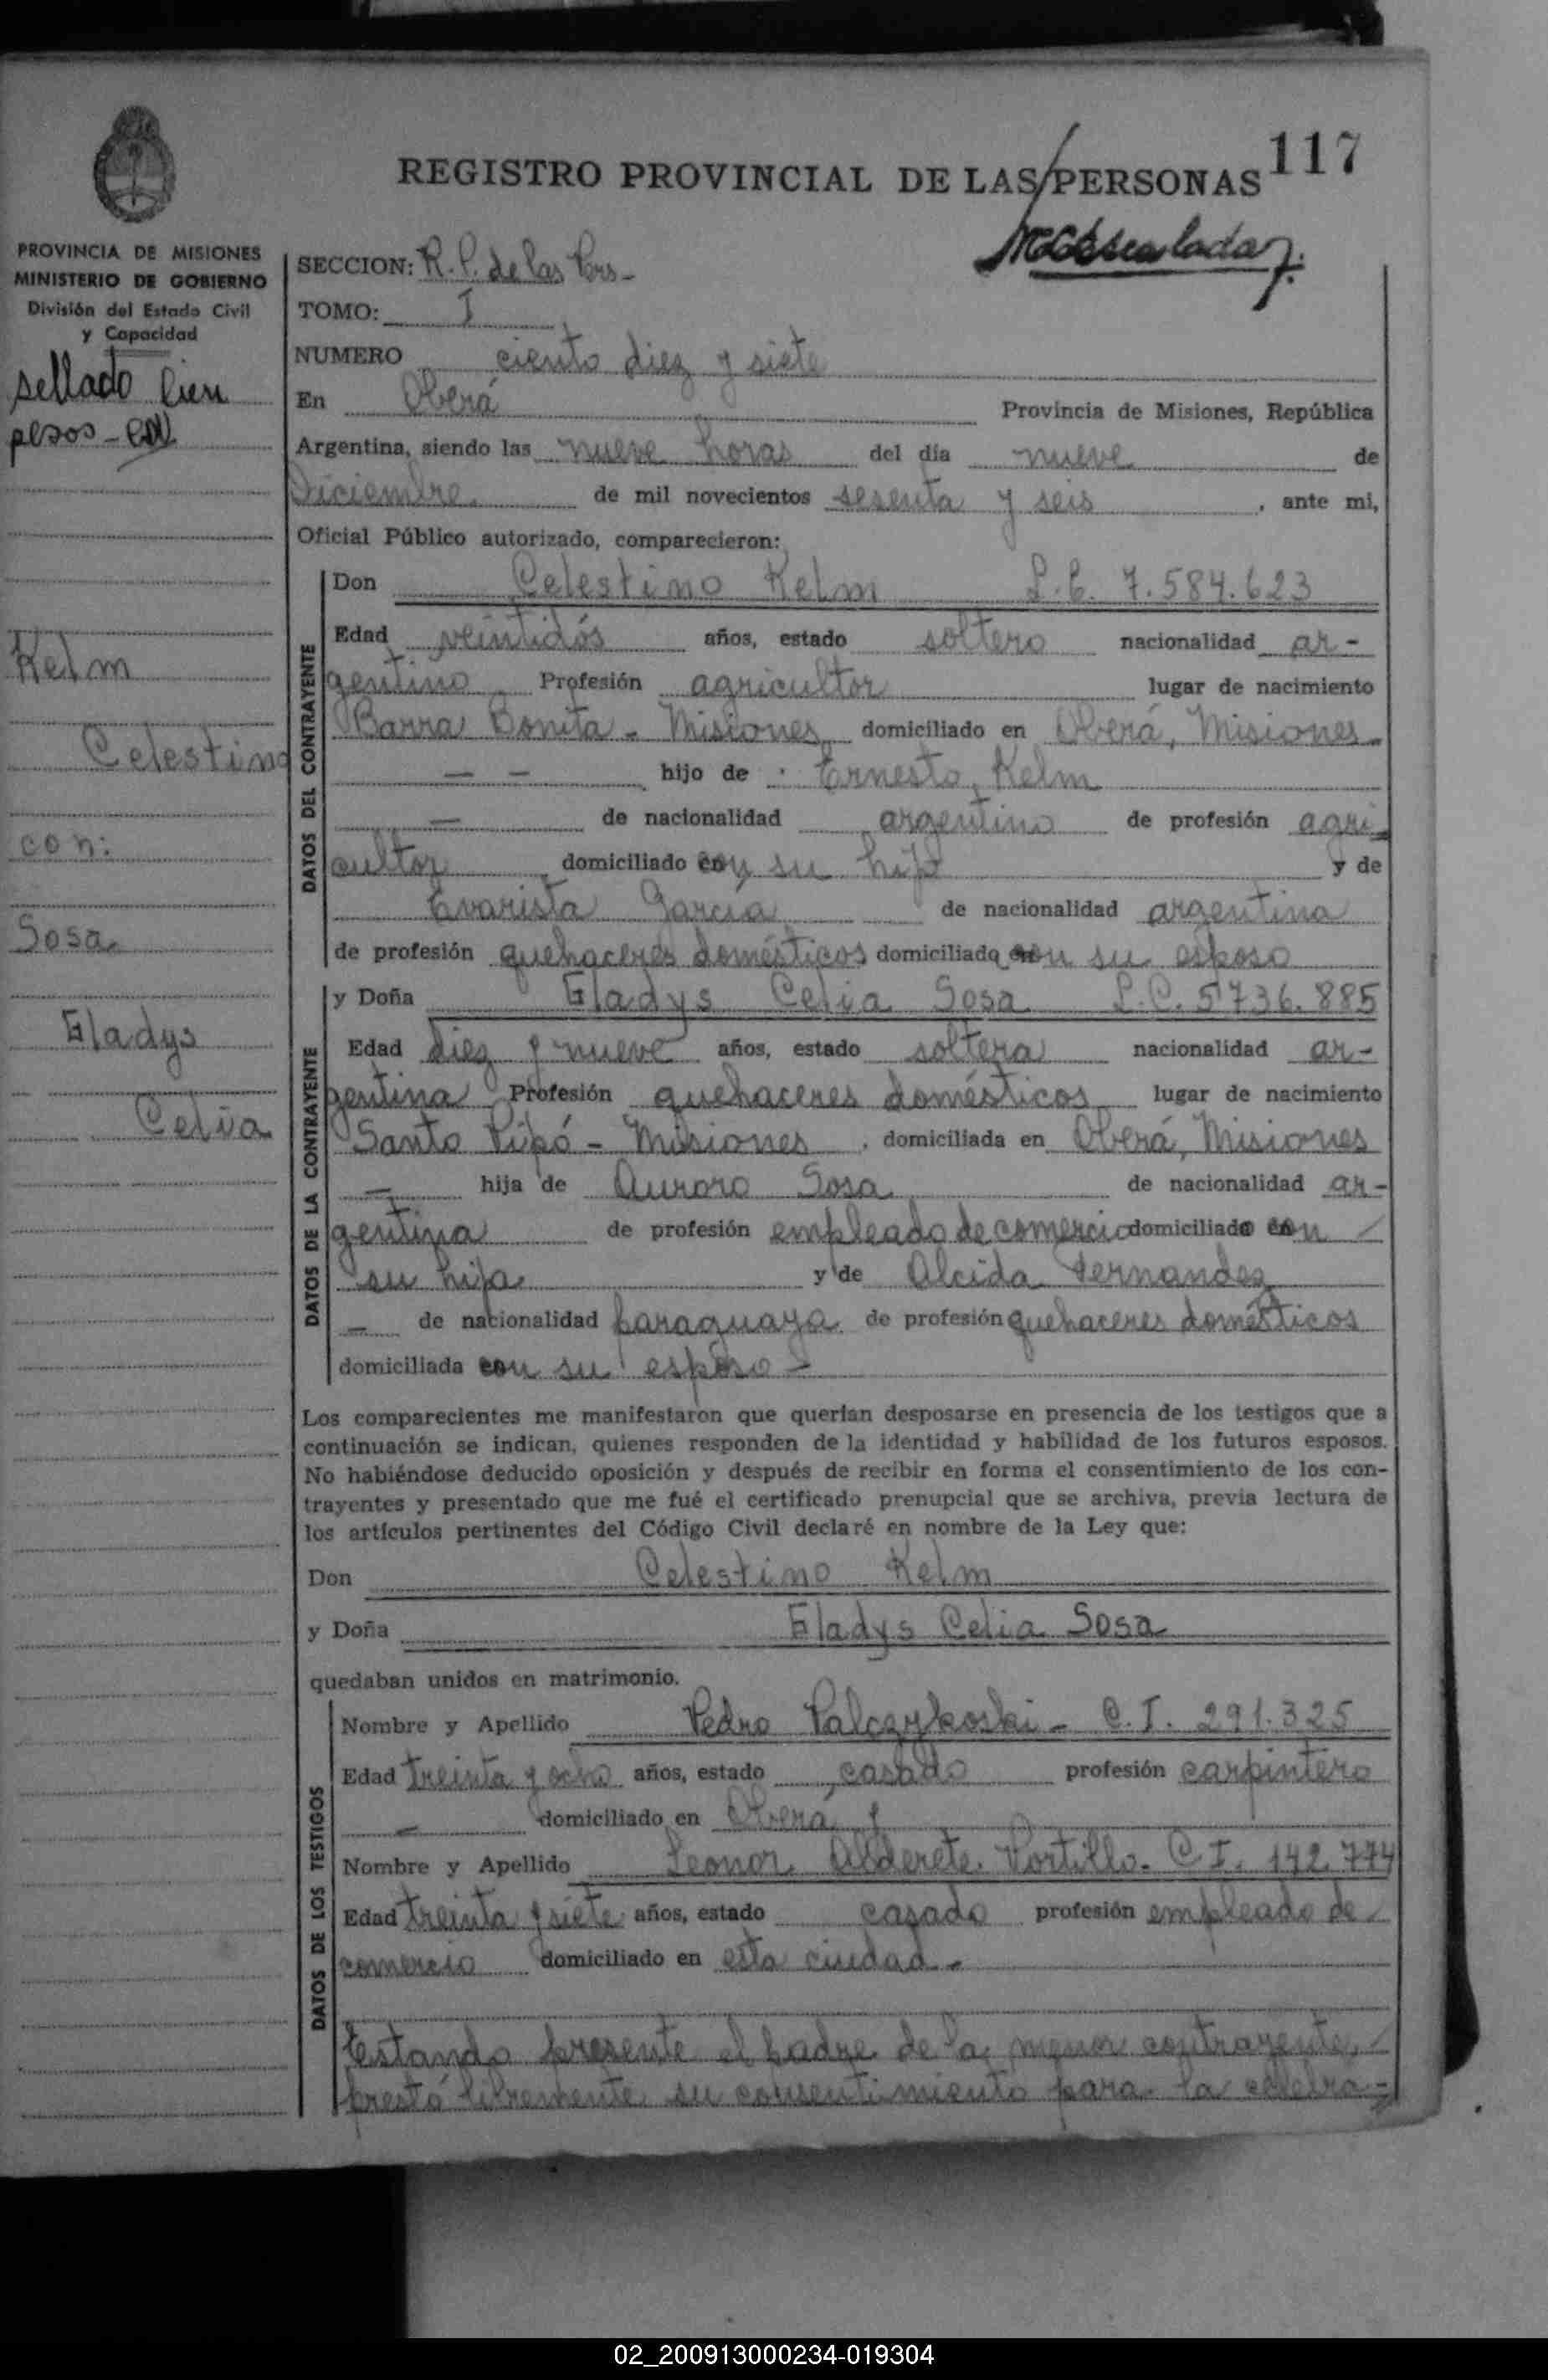 REGISTRO PROVINCIAL DE LAS PERSONAS 117
PROVINCIA DE MISIONES
MINISTERIO DE GOBIERNO
División del Estado Civil
y Capacidad
sellado cien
pesos -
Kelm
Celestino
con:
Sosa
Gladys
Celia
SECCION: R. P. de las Pers-
TOMO: I
NUMERO ciento diez y siete
En Oberá Provincia de Misiones, República
Argentina, siendo las nueve horas del día nueve de
Diciembre de mil novecientos sesenta y seis, ante mi,
Oficial Público autorizado, comparecieron:
DATOS DEL CONTRAYENTE
Don Celestino Kelm L.E. 7.584.623
Edad veintidós años, estado soltero nacionalidad ar-
gentino Profesión agricultor lugar de nacimiento
Barra Bonita - Misiones, domiciliado en Oberá, Misiones-
— — hijo de Ernesto Kelm
— de nacionalidad argentino de profesión agri-
cultor, domiciliado con su hijo y de
Evarista Garcia de nacionalidad argentina
de profesión quehaceres domésticos domiciliada con su esposo
DATOS DE LA CONTRAYENTE
y Doña Gladys Celia Sosa L.C. 5736.885
Edad diez y nueve años, estado soltera nacionalidad ar-
gentina Profesión quehaceres domésticos lugar de nacimiento
Santo Pipó - Misiones, domiciliada en Oberá, Misiones
— hija de Auroro Sosa de nacionalidad ar-
gentina de profesión empleado de comercio domiciliado con
su hija y de Alcida Fernandez
— de nacionalidad paraguaya de profesión quehaceres domésticos
domiciliada con su esposo -
Los comparecientes me manifestaron que querían desposarse en presencia de los testigos que a
continuación se indican, quienes responden de la identidad y habilidad de los futuros esposos.
No habiéndose deducido oposición y después de recibir en forma el consentimiento de los con-
trayentes y presentado que me fué el certificado prenupcial que se archiva, previa lectura de
los artículos pertinentes del Código Civil declaré en nombre de la Ley que:
Don Celestino Kelm
y Doña Gladys Celia Sosa
quedaban unidos en matrimonio.
DATOS DE LOS TESTIGOS
Nombre y Apellido Pedro Palczykoski - C.I. 291.325
Edad treinta y ocho años, estado casado profesión carpintero
— domiciliado en Oberá y
Nombre y Apellido Leonor Alderete Portillo - C.I. 142.774
Edad treinta y siete años, estado casado profesión empleado de
comercio domiciliado en esta ciudad -
Estando presente el padre de la menor contrayente,
prestó libremente su consentimiento para la celebra-
02_200913000234-019304